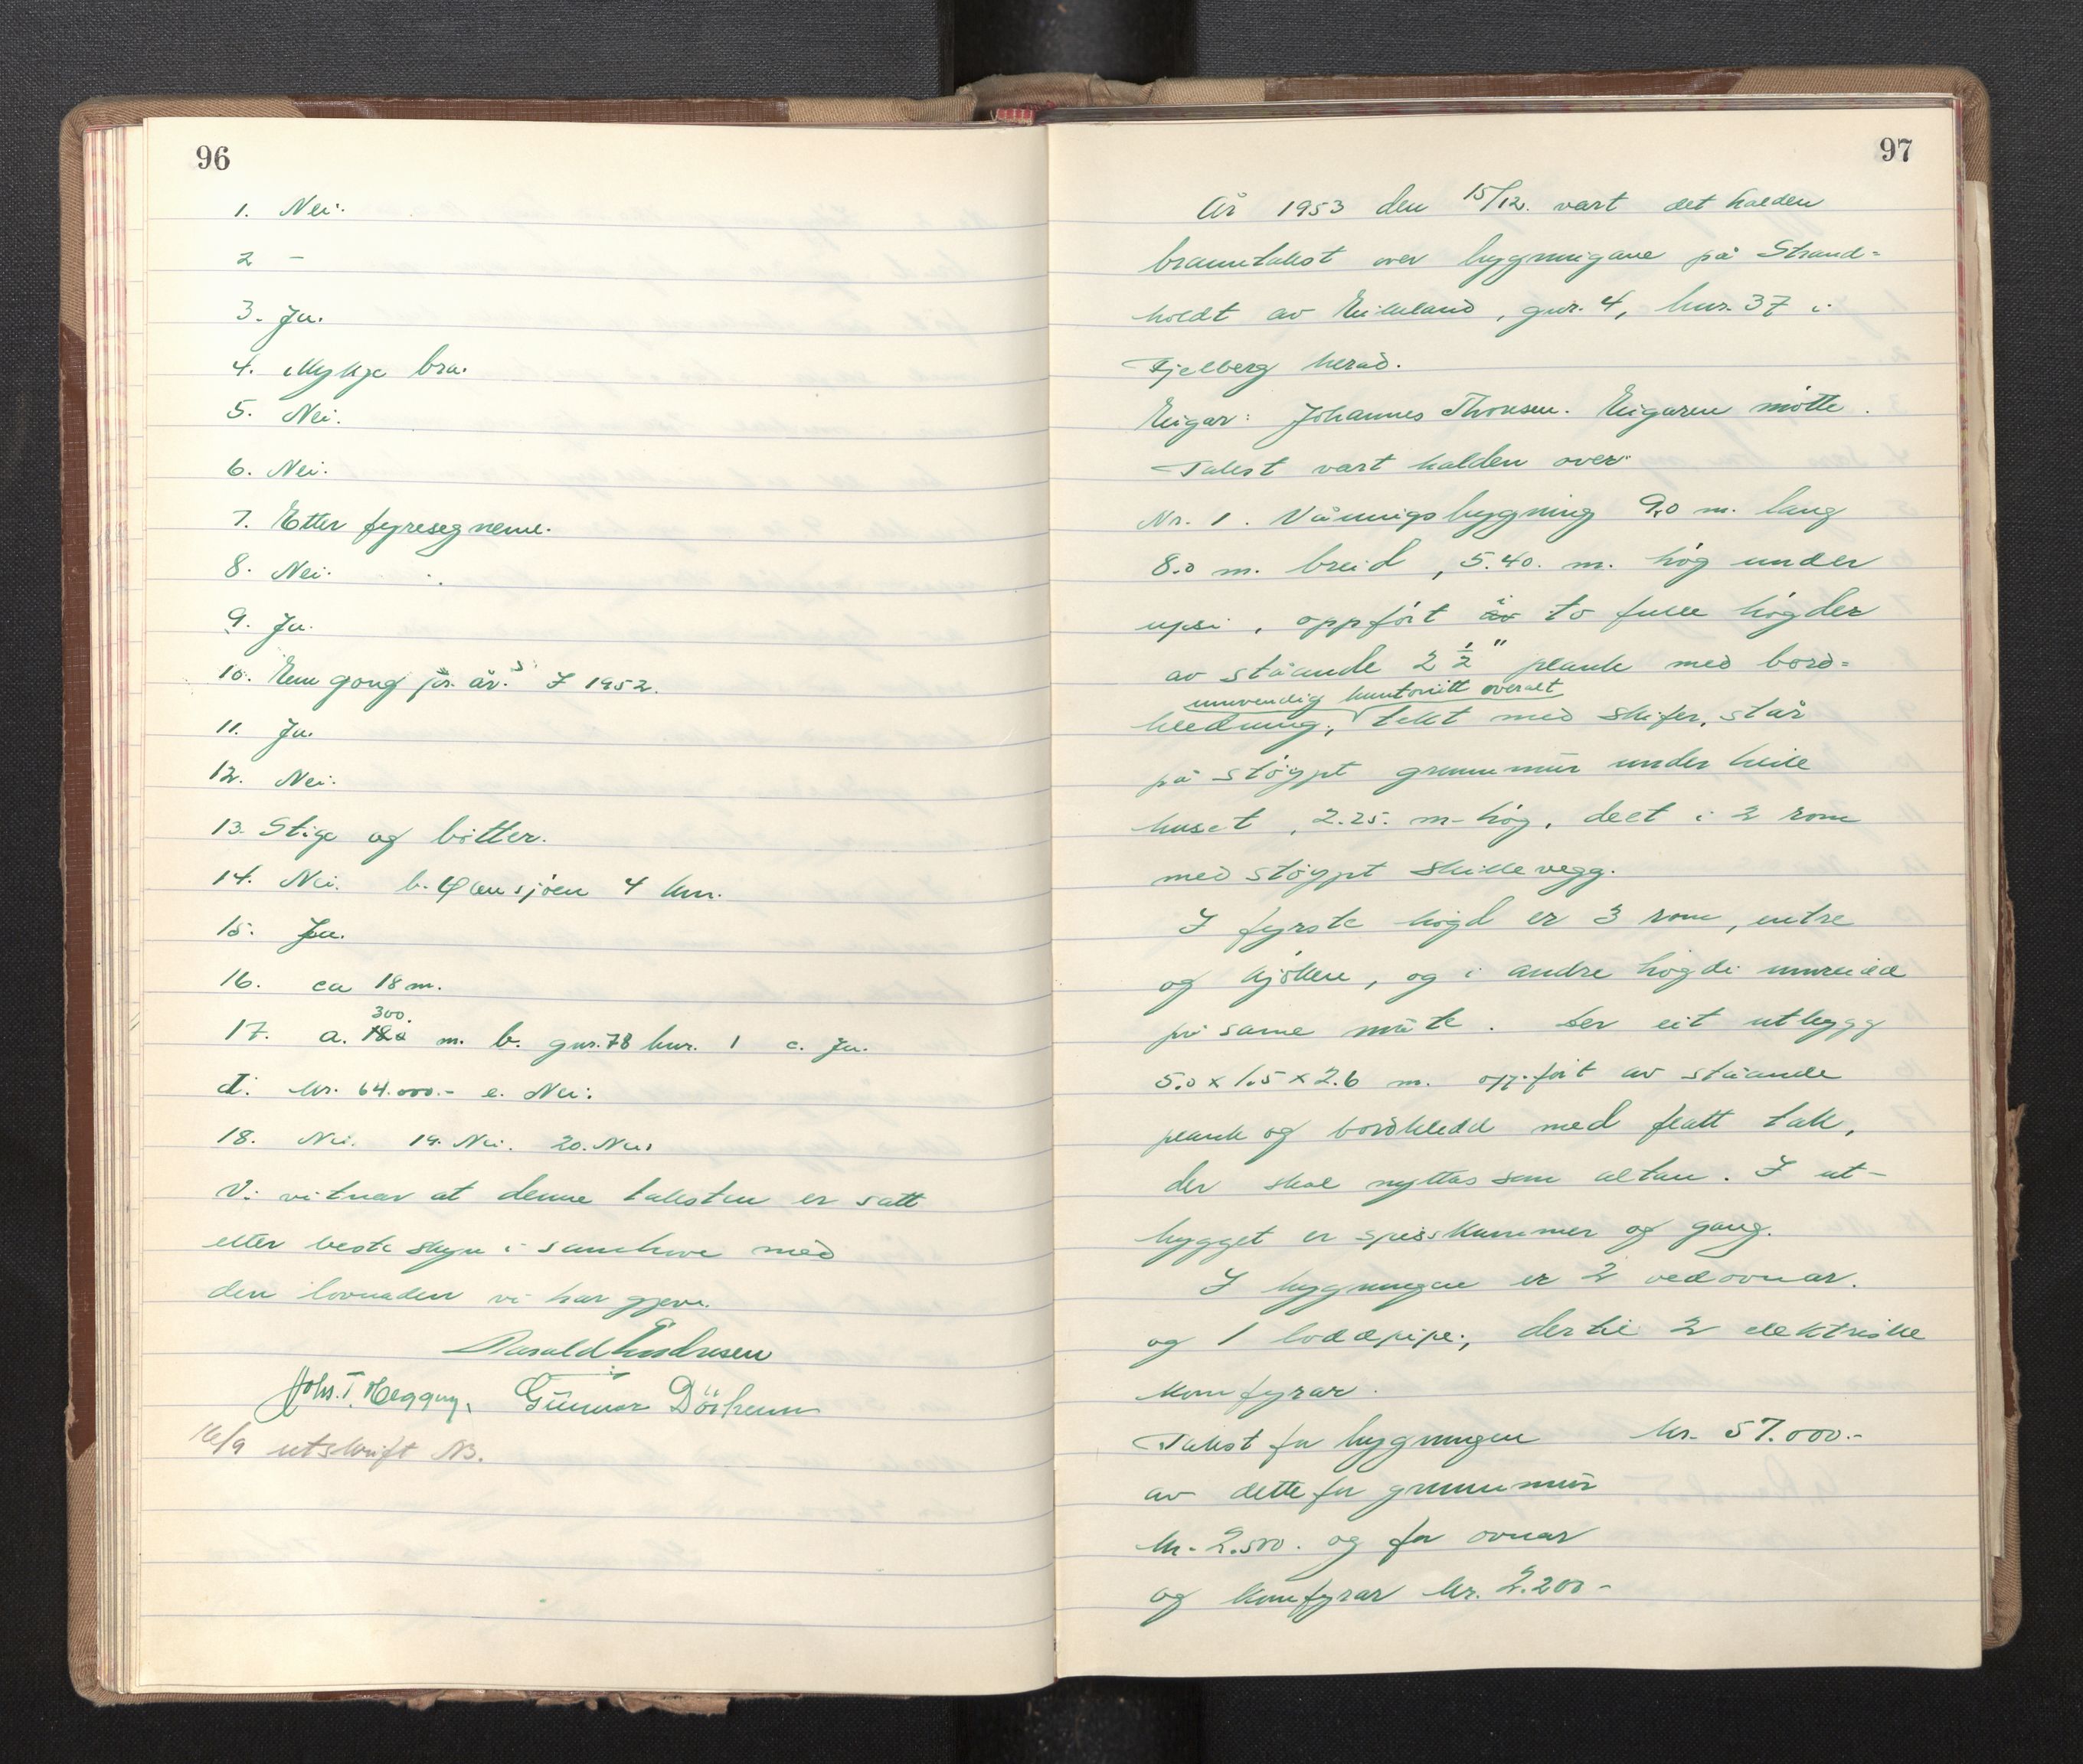 96
1. Nei.
2 -
3. Ja.
4. Mykje bra.
5. Nei.
6. Nei.
7. Etter fyresegnene.
8. Nei.
9. Ja.
10. Ein gong pr. år. I 1952.
11. Ja.
12. Nei.
13. Stige og bøtter.
14. Nei. b. Ølensjøen 4 km.
15. Ja.
16. ca 18 m.
300.
17. a. m. b. gnr. 78 bnr. 1 c. Ja.
d. kr. 64.000.- e. Nei.
18. Nei. 19. Nei. 20. Nei.
Vi vitnar at denne taksten er satt
etter beste skyn i samhøve med
den lovnaden vi har gjeve.
Harald Andresen
Johs. T. Heggøy. Gunnar
16/9 utskrift NB.
97
År 1953 den 15/12. vart det halden
branntakst over bygningane på Strand-
holdt av Eikeland, gnr. 4, bnr. 37 i
Fjelberg herad.
Eigar: Johannes Thonsen. Eigaren møtte.
Takst vart halden over:
Nr. 1. Våningsbygning 9,0 m. lang
8.0 m. breid, 5.40. m. høg under
upsi, oppført av i to fulle høgder
av ståande 2 1/2" plank med bord-
innvendig huntonitt overalt
kledning, tekt med skifer, står
på støypt grunnmur under heile
huset, 2.25. m. høg, delt i 2 rom
med støypt skillevegg.
I fyrste høgd er 3 rom, entre
og kjøken, og i andre høgdi innreidd
på same måte. Der eit utbygg
5.0 x 1.5 x 2.6 m. oppført av ståande
plank og bordkledd med flatt tak,
der skal nyttas som altan. I ut-
bygget er spisskammer og gang.
I bygningen er 2 vedovnar.
og 1 loddpipe, dertil 2 elektriske
komfyrar.
Takst for bygningen kr. 57.000.-
av dette for grunnmur
kr. 2.500. og for ovnar
og komfyrar kr. 2.200-